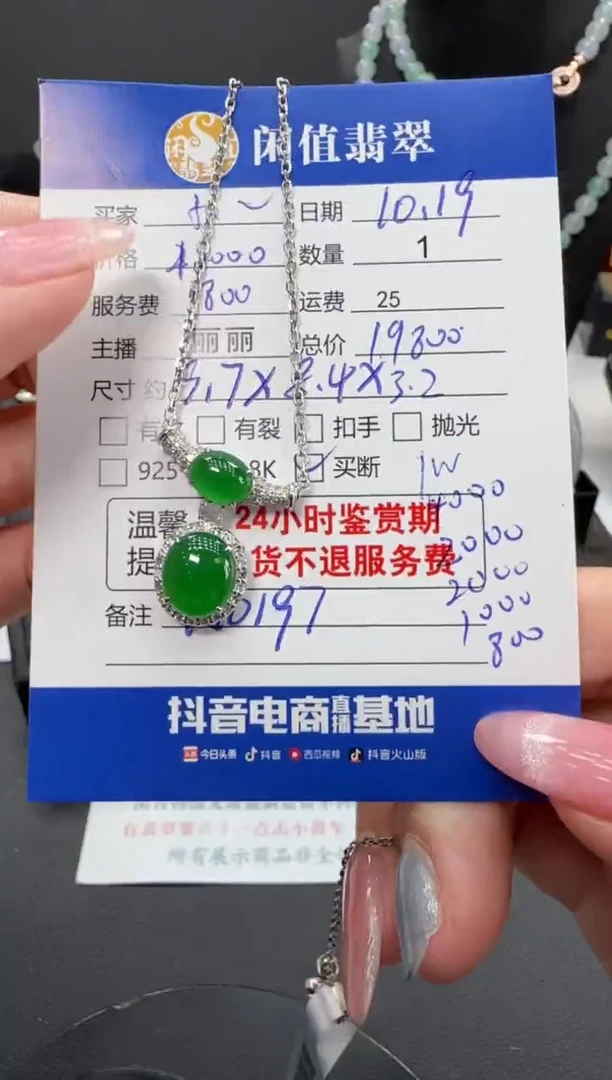 闲值翡翠
买家 日期 10.19
价格 数量 1
服务费 800 运费 25
主播 丽丽 总价 19800
尺寸 约 .4X3.2
有裂 扣手 抛光
925 8K 买断
1W
4000
温馨 24小时鉴赏期
2000
提 货不退服务费
2000
备注 0197
1000
800
抖音电商直播基地
今日头条 抖音 西瓜视频 抖音火山版
所有展示商品非全